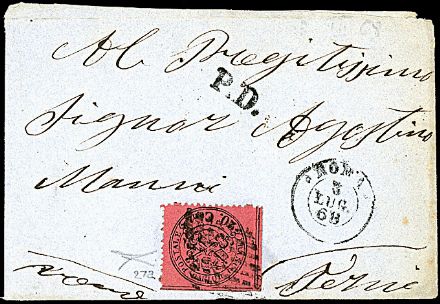 Al Pregiatissimo
P.D.
Signor Agostino
Manni
ROMA
5
LUG
68
273
Terni